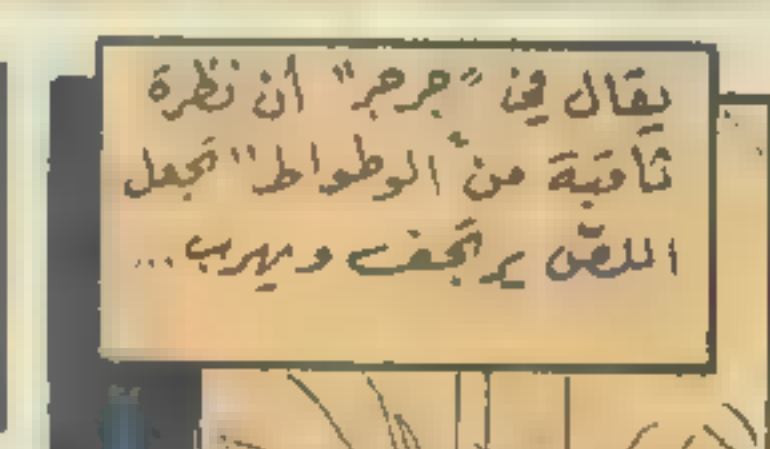 يقال في "جرجر" أن نظرة
ثاقبة من الوطواط" تجعل
اللص يرتجف ويهرب...